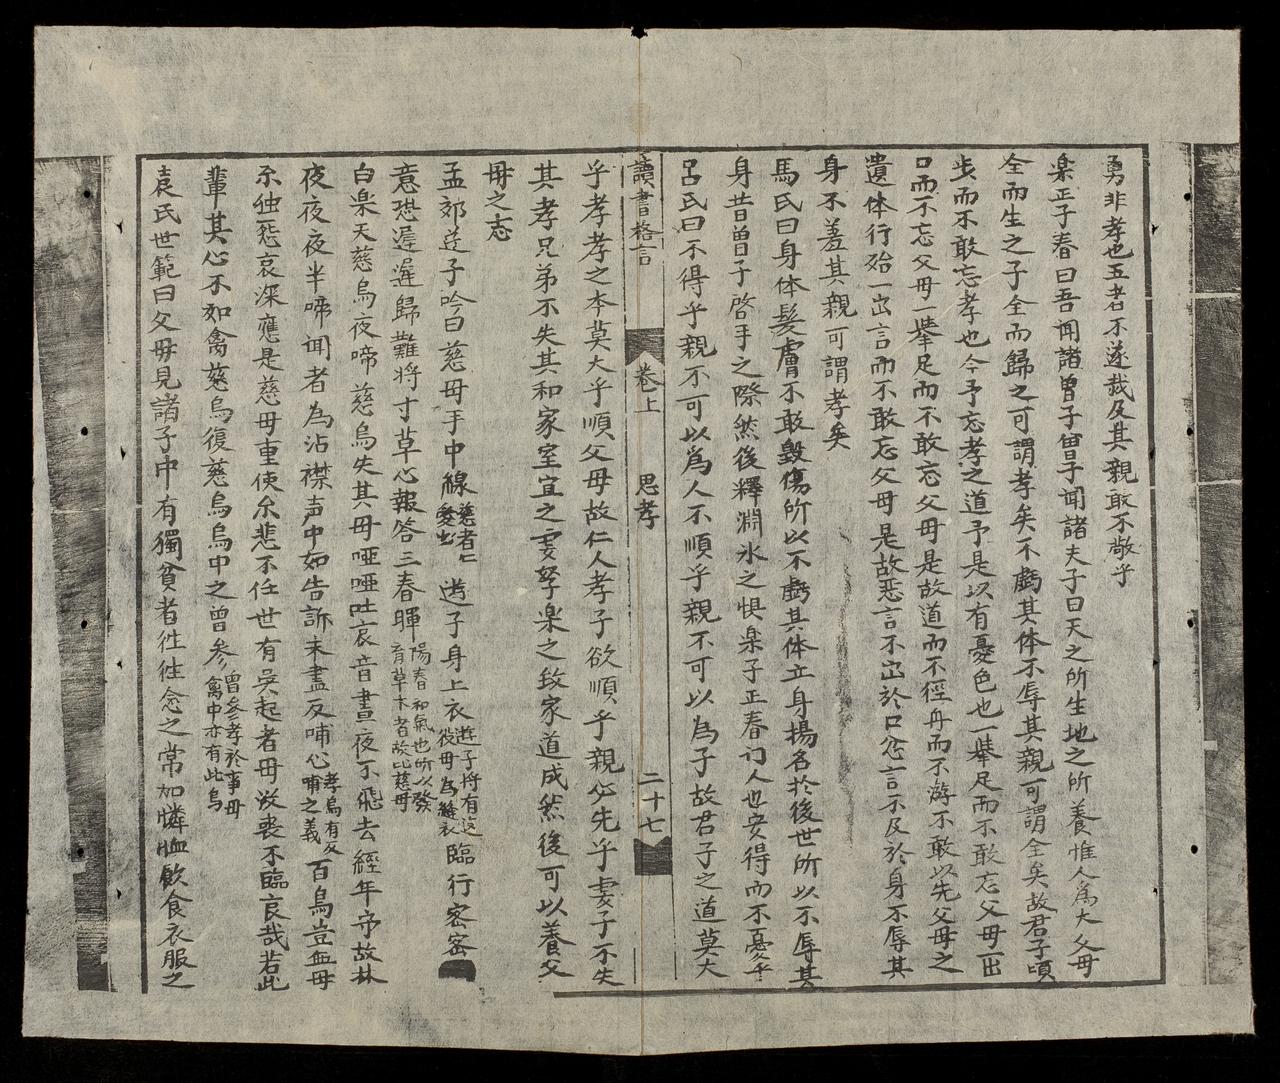 勇非孝也五者不遂烖及其親敢不敬乎
楽正子春曰吾闻諸曽子曽子闻諸夫子曰天之所生地之所養惟人為大父毋
全而生之子全而歸之可謂孝矣不虧其体不辱其親可謂全矣故君子頃
步而不敢忘孝也今予忘孝之道予是以有憂色也一举足而不敢忘父毋一出
口而不忘父毋一举足而不敢忘父毋是故道而不徑舟而不游不敢以先父毋之
遺体行殆一出言而不敢忘父毋是故悪言不出於口忿言不及於身不辱其
身不羞其親可謂孝矣
馬氏曰身体髪膚不敢毀傷所以不虧其体立身揚名於後世所以不辱其
身昔曽子啓手之際然後釋淵氷之惧楽子正春门人也安得而不憂乎
呂氏曰不得乎親不可以為人不順乎親不可以為子故君子之道莫大
讀書格言 卷上 思孝 二十七
乎孝孝之本莫大乎順父毋故仁人孝子欲順乎親必先乎妻子不失
其孝兄弟不失其和家室宜之妻孥楽之致家道成然後可以養父
毋之志
孟郊逰子吟曰慈毋手中線慈者仁愛也逰子身上衣逰子将有远役毋為縫衣臨行宻宻
意恐遲遲歸難将寸草心報答三春暉陽春和氣也所以發育草木者故比慈毋
白楽天慈烏夜啼慈烏失其毋哑哑吐哀音晝夜不飛去經年守故林
夜夜夜半啼闻者為沾襟声中如告訴未盡反哺心孝烏有反哺之義百鳥豈無毋
尒独㤪哀深應是慈毋重使尒悲不任世有吴起者毋殁丧不臨哀哉若此
輩其心不如禽慈烏復慈烏烏中之曽参曽参孝於事毋禽中亦有此烏
袁氏世範曰父毋見諸子中有獨貧者徃徃念之常加憐恤飲食衣服之